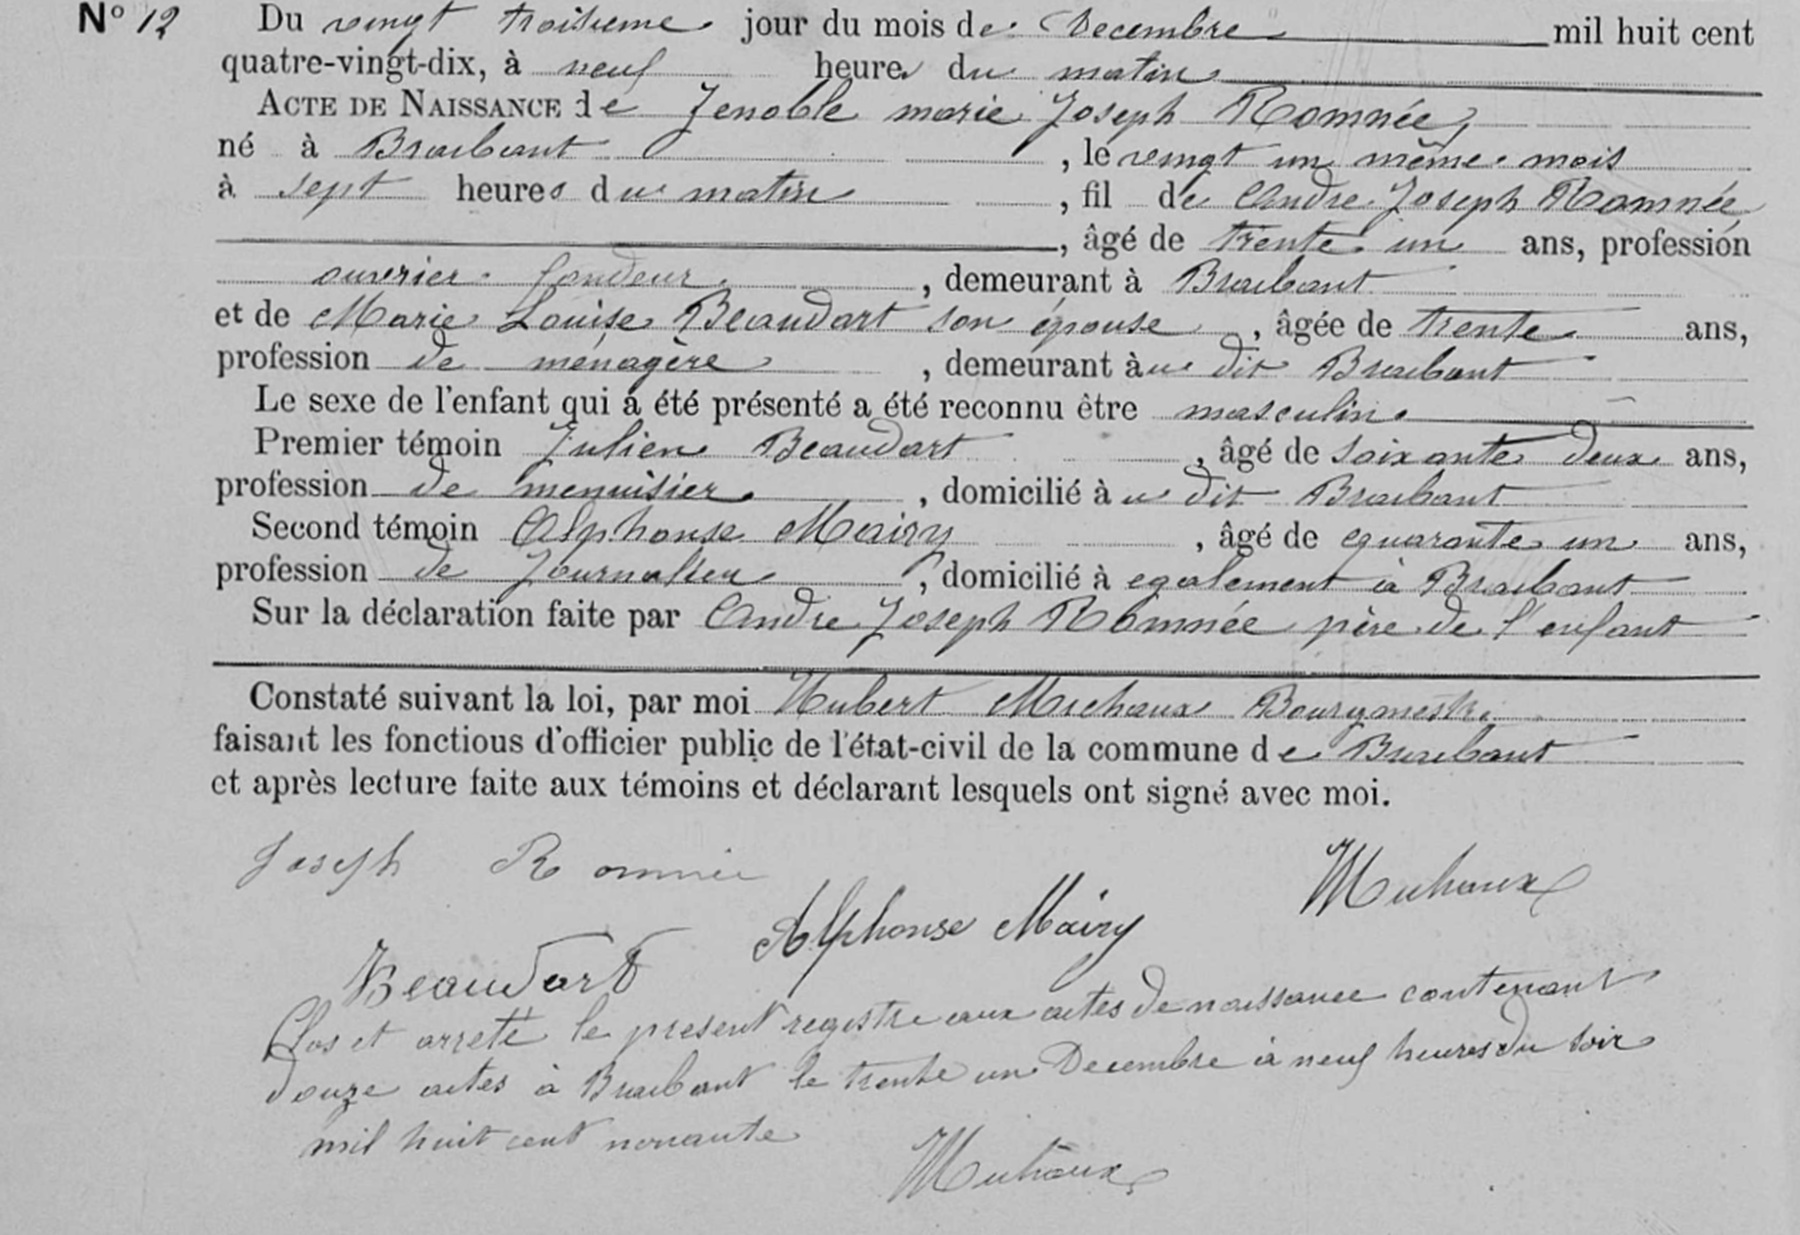 N° 12 Du vingt troisieme jour du mois de Decembre mil huit cent
quatre-vingt-dix, à neuf heures du matin
ACTE DE NAISSANCE de Zenoble marie Joseph Romnée,
né à Braibant, le vingt un même mois
à sept heures du matin, fil de Andre Joseph Romnée
, âgé de trente un ans, profession
ouvrier fondeur, demeurant à Braibant
et de Marie Louise Beaudart son épouse, âgée de trente ans,
profession de ménagère, demeurant à u dit Braibant
Le sexe de l'enfant qui a été présenté a été reconnu être masculin.
Premier témoin Julien Beaudart, âgé de soixante deux ans,
profession de menuisier, domicilié à u dit Braibant
Second témoin Alphonse Mairy, âgé de quarante un ans,
profession de Journalier, domicilié à egalement à Braibant
Sur la déclaration faite par Andre Joseph Romnée père de l'enfant
Constaté suivant la loi, par moi Hubert Michaux Bourgmestre
faisant les fonctious d'officier public de l'état-civil de la commune de Braibant
et après lecture faite aux témoins et déclarant lesquels ont signé avec moi.
Joseph Romnée
Michaux
Alphonse Mairy
Beaudart
Clos et arreté le present registre aux actes de naissance contenant
douze actes à Braibant le trente un Decembre à neuf heures du soir
mil huit cent nonante
Michaux